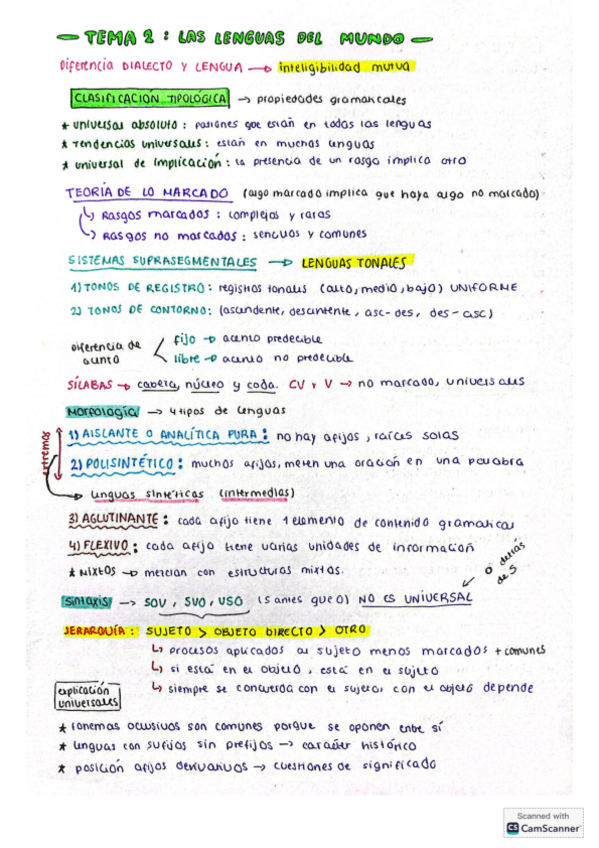 — TEMA 2 : LAS LENGUAS DEL MUNDO —
Diferencia DIALECTO Y LENGUA → inteligibilidad mutua
CLASIFICACIÓN TIPOLÓGICA → propiedades gramaticales
* universal absoluto : patrones que están en todas las lenguas
* Tendencias universales : están en muchas lenguas
* universal de implicación : la presencia de un rasgo implica otro
TEORÍA DE LO MARCADO (algo marcado implica que haya algo no marcado)
↳ Rasgos marcados : complejos y raros
↳ Rasgos no marcados : sencillos y comunes
SISTEMAS SUPRASEGMENTALES → LENGUAS TONALES
1) TONOS DE REGISTRO : registros tonales (alto, medio, bajo) UNIFORME
2) TONOS DE CONTORNO : (ascendente, descendente, asc-des, des-asc)
diferencia de acento
fijo → acento predecible
libre → acento no predecible
SÍLABAS → cabeza, núcleo y coda. CV y V → no marcado, universales
Morfología → 4 tipos de lenguas
extremos
1) AISLANTE O ANALÍTICA PURA : no hay afijos, raíces solas
2) POLISINTÉTICO : muchos afijos, meten una oración en una palabra
→ lenguas sintéticas (intermedias)
3) AGLUTINANTE : cada afijo tiene 1 elemento de contenido gramatical
4) FLEXIVO : cada afijo tiene varias unidades de información
* MIXTOS → mezclan con estructuras mixtas.
O detrás de S
Sintaxis → SOV, SVO, VSO (S antes que O) NO ES UNIVERSAL
JERARQUÍA : SUJETO > OBJETO DIRECTO > OTRO
↳ procesos aplicados al sujeto menos marcados + comunes
↳ si está en el objeto, está en el sujeto
↳ siempre se concuerda con el sujeto, con el objeto depende
explicación universales
* Fonemas oclusivos son comunes porque se oponen entre sí
* lenguas con sufijos sin prefijos → carácter histórico
* posición afijos derivativos → cuestiones de significado
Scanned with
CS CamScanner